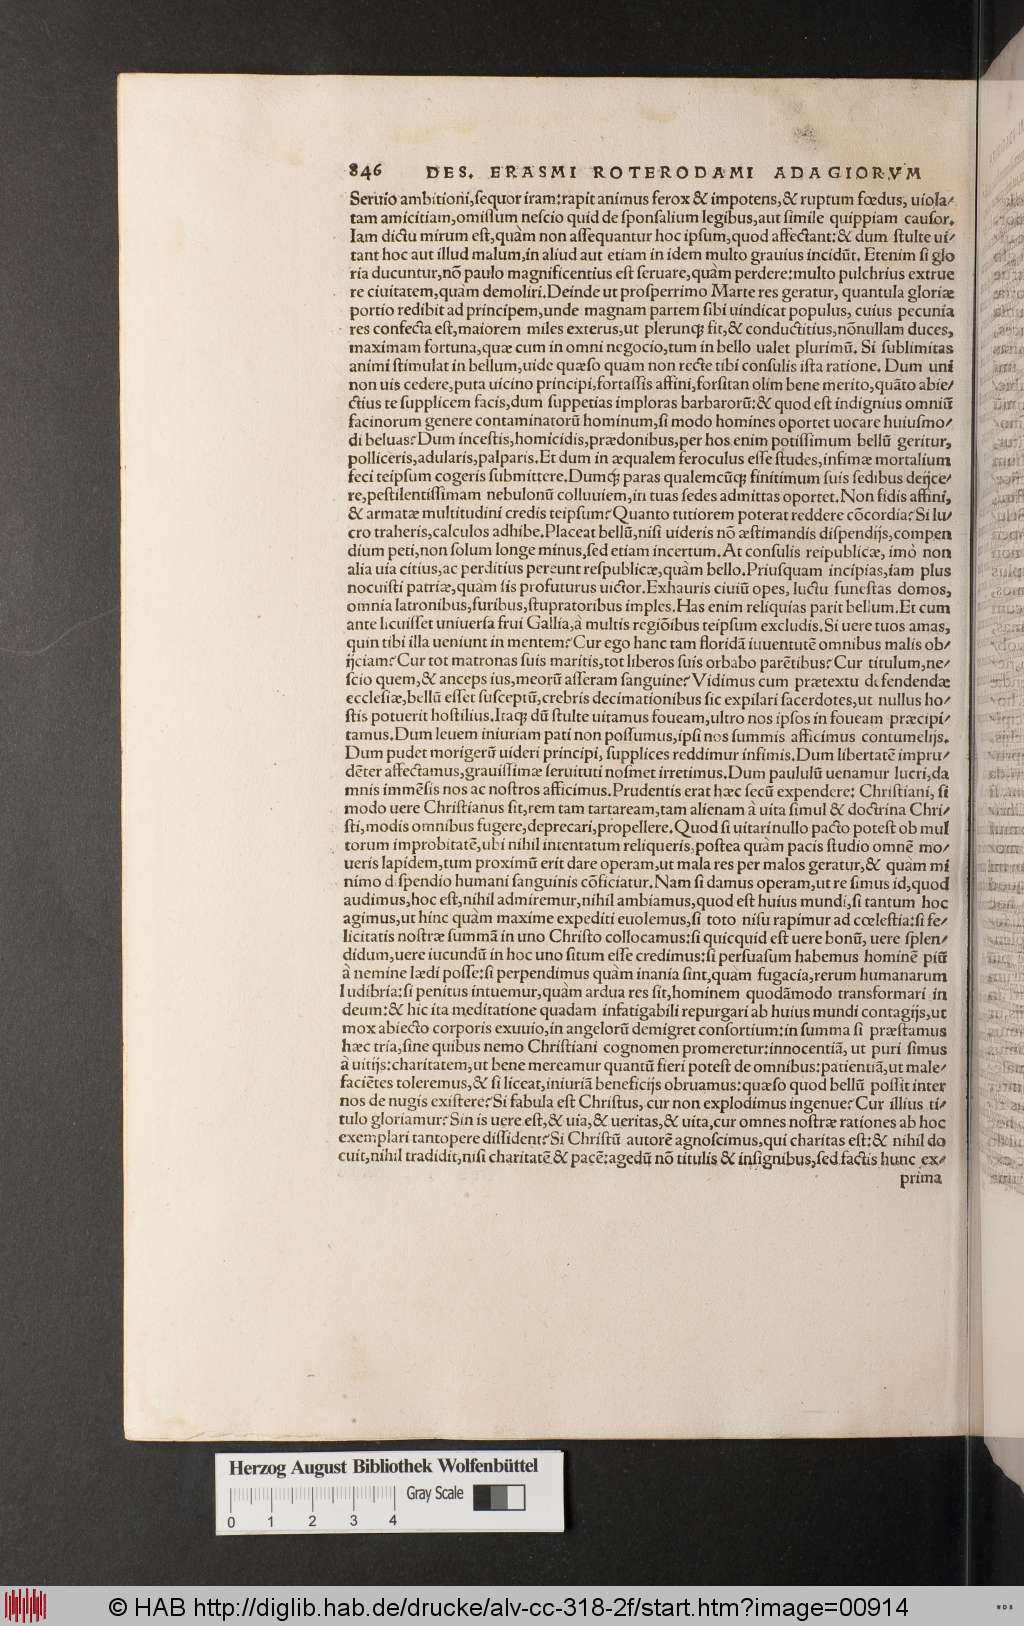 846 DES. ERASMI ROTERODAMI ADAGIORVM
Seruio ambitioni,ſequor iram:rapit animus ferox & impotens,& ruptum fœdus, uiola⸗
tam amicitiam,omiſſum neſcio quid de ſponſalium legibus,aut ſimile quippiam cauſor.
Iam dictu mirum eſt,quàm non aſſequantur hoc ipſum,quod affectant:& dum ſtulte ui⸗
tant hoc aut illud malum,in aliud aut etiam in idem multo grauius incidũt. Etenim ſi glo
ria ducuntur,nõ paulo magnificentius eſt ſeruare,quàm perdere:multo pulchrius extrue
re ciuitatem,quàm demoliri.Deinde ut proſperrimo Marte res geratur, quantula gloriæ
portio redibit ad principem,unde magnam partem ſibi uindicat populus, cuius pecunia
res confecta eſt,maiorem miles exterus,ut plerunq; fit,& conductitius,nõnullam duces,
maximam fortuna,quæ cum in omni negocio,tum in bello ualet plurimũ. Si ſublimitas
animi ſtimulat in bellum,uide quæſo quam non recte tibi conſulis iſta ratione. Dum uni
non uis cedere,puta uicino principi,fortaſſis affini,forſitan olim bene merito,quãto abie⸗
ctius te ſupplicem facis,dum ſuppetias imploras barbarorũ:& quod eſt indignius omniũ
facinorum genere contaminatorũ hominum,ſi modo homines oportet uocare huiuſmo⸗
di beluas?Dum inceſtis,homicidis,prædonibus,per hos enim potiſſimum bellũ geritur,
polliceris,adularis,palparis.Et dum in æqualem feroculus eſſe ſtudes,infimæ mortalium
feci teipſum cogeris ſubmittere.Dumq; paras qualemcũq; finitimum ſuis ſedibus deijce⸗
re,peſtilentiſſimam nebulonũ colluuiem,in tuas ſedes admittas oportet.Non fidis affini,
& armatæ multitudini credis teipſum?Quanto tutiorem poterat reddere cõcordia?Si lu⸗
cro traheris,calculos adhibe.Placeat bellũ,niſi uideris nõ æſtimandis diſpendijs,compen
dium peti,non ſolum longe minus,ſed etiam incertum.At conſulis reipublicæ, imò non
alia uia citius,ac perditius pereunt reſpublicæ,quàm bello.Priuſquam incipias,iam plus
nocuiſti patriæ,quàm ſis profuturus uictor.Exhauris ciuiũ opes, luctu funeſtas domos,
omnia latronibus,furibus,ſtupratoribus imples.Has enim reliquias parit bellum.Et cum
ante licuiſſet uniuerſa frui Gallia,à multis regiõibus teipſum excludis.Si uere tuos amas,
quin tibi illa ueniunt in mentem?Cur ego hanc tam floridã iuuentutẽ omnibus malis ob⸗
ijciam?Cur tot matronas ſuis maritis,tot liberos ſuis orbabo parẽtibus?Cur titulum,ne⸗
ſcio quem,& anceps ius,meorũ aſſeram ſanguine?Vidimus cum prætextu defendendæ
eccleſiæ,bellũ eſſet ſuſceptũ,crebris decimationibus ſic expilari ſacerdotes,ut nullus ho⸗
ſtis potuerit hoſtilius.Itaq; dũ ſtulte uitamus foueam,ultro nos ipſos in foueam præcipi⸗
tamus.Dum leuem iniuriam pati non poſſumus,ipſi nos ſummis afficimus contumelijs.
Dum pudet morigerũ uideri principi, ſupplices reddimur infimis.Dum libertatẽ impru⸗
dẽter affectamus,grauiſſimæ ſeruituti noſmet irretimus.Dum paululũ uenamur lucri,da
mnis immẽſis nos ac noſtros afficimus.Prudentis erat hæc ſecũ expendere: Chriſtiani, ſi
modo uere Chriſtianus ſit,rem tam tartaream,tam alienam à uita ſimul & doctrina Chri⸗
ſti,modis omnibus fugere,deprecari,propellere.Quod ſi uitari nullo pacto poteſt ob mul
torum improbitatẽ,ubi nihil intentatum reliqueris,poſtea quàm pacis ſtudio omnẽ mo⸗
ueris lapidem,tum proximũ erit dare operam,ut mala res per malos geratur,& quàm mi
nimo diſpendio humani ſanguinis cõficiatur.Nam ſi damus operam,ut re ſimus id,quod
audimus,hoc eſt,nihil admiremur,nihil ambiamus,quod eſt huius mundi,ſi tantum hoc
agimus,ut hinc quàm maxime expediti euolemus,ſi toto niſu rapimur ad cœleſtia:ſi fe⸗
licitatis noſtræ ſummã in uno Chriſto collocamus:ſi quicquid eſt uere bonũ, uere ſplen⸗
didum,uere iucundũ in hoc uno ſitum eſſe credimus:ſi perſuaſum habemus hominẽ piũ
à nemine lædi poſſe:ſi perpendimus quàm inania ſint,quàm fugacia,rerum humanarum
ludibria:ſi penitus intuemur,quàm ardua res ſit,hominem quodãmodo transformari in
deum:& hic ita meditatione quadam infatigabili repurgari ab huius mundi contagijs,ut
mox abiecto corporis exuuio,in angelorũ demigret conſortium:in ſumma ſi præſtamus
hæc tria,ſine quibus nemo Chriſtiani cognomen promeretur:innocentiã, ut puri ſimus
à uitijs:charitatem,ut bene mereamur quantũ fieri poteſt de omnibus:patientiã,ut male⸗
faciẽtes toleremus,& ſi liceat,iniuriã beneficijs obruamus:quæſo quod bellũ poſſit inter
nos de nugis exiſtere?Si fabula eſt Chriſtus, cur non explodimus ingenue?Cur illius ti⸗
tulo gloriamur?Sin is uere eſt,& uia,& ueritas,& uita,cur omnes noſtræ rationes ab hoc
exemplari tantopere diſſident?Si Chriſtũ autorẽ agnoſcimus,qui charitas eſt:& nihil do
cuit,nihil tradidit,niſi charitatẽ & pacẽ:agedũ nõ titulis & inſignibus,ſed factis hunc ex⸗
prima
Herzog August Bibliothek Wolfenbüttel
Gray Scale
0 1 2 3 4
© HAB http://diglib.hab.de/drucke/alv-cc-318-2f/start.htm?image=00914